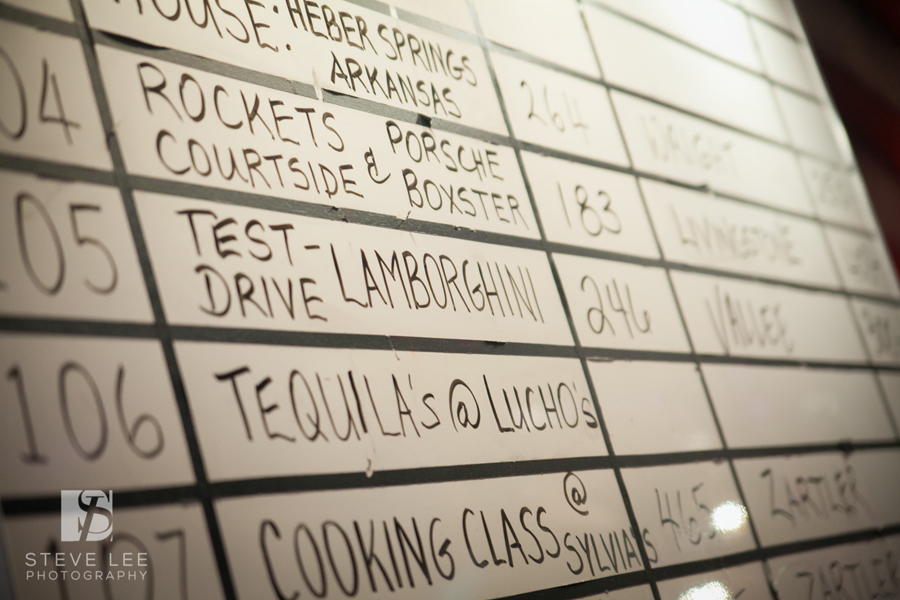 HOUSE: HEBER SPRINGS
ARKANSAS 264
04 ROCKETS PORSCHE
COURTSIDE & BOXSTER 183 LIVINGSTONE
105 TEST- LAMBORGHINI 246 VALLEE
DRIVE
106 TEQUILA'S @ LUCHO'S
107 COOKING CLASS @ SYLVIA'S 465 ZARTLER
ZARTLER
STEVE LEE
PHOTOGRAPHY